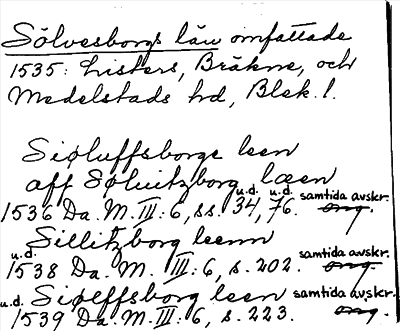 Sölvesborgs län omfattade
1535: Listers, Bräkne, och
Medelstads hd, Blek. l.
Siøluffsborgs leen
aff Søluitzborg læen
1536 Da. M. III: 6, ss. u.d. 34, u.d. 76. samtida avskr. orig.
Sillitzborg leenn
u.d. 1538 Da. M. III: 6, s. 202. samtida avskr. orig.
u.d. Siøeffsborg leen samtida avskr.
1539 Da. M. III: 6, s. 223. orig.